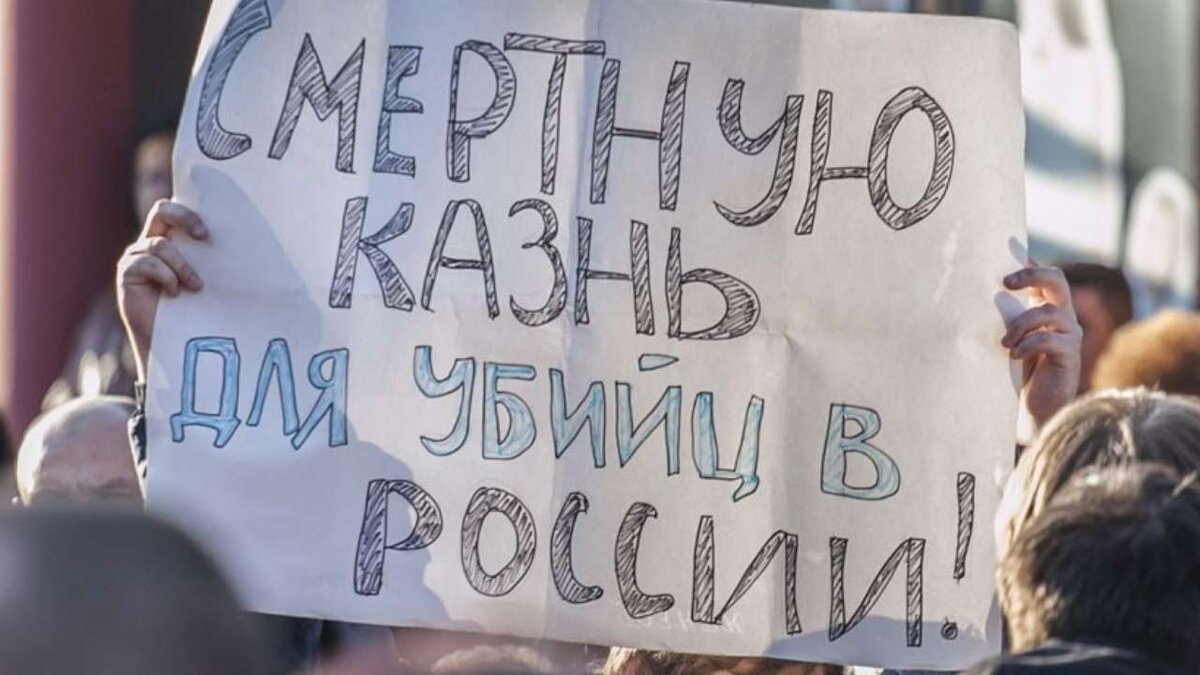 СМЕРТНУЮ
КАЗНЬ
ДЛЯ УБИЙЦ В
РОССИИ!